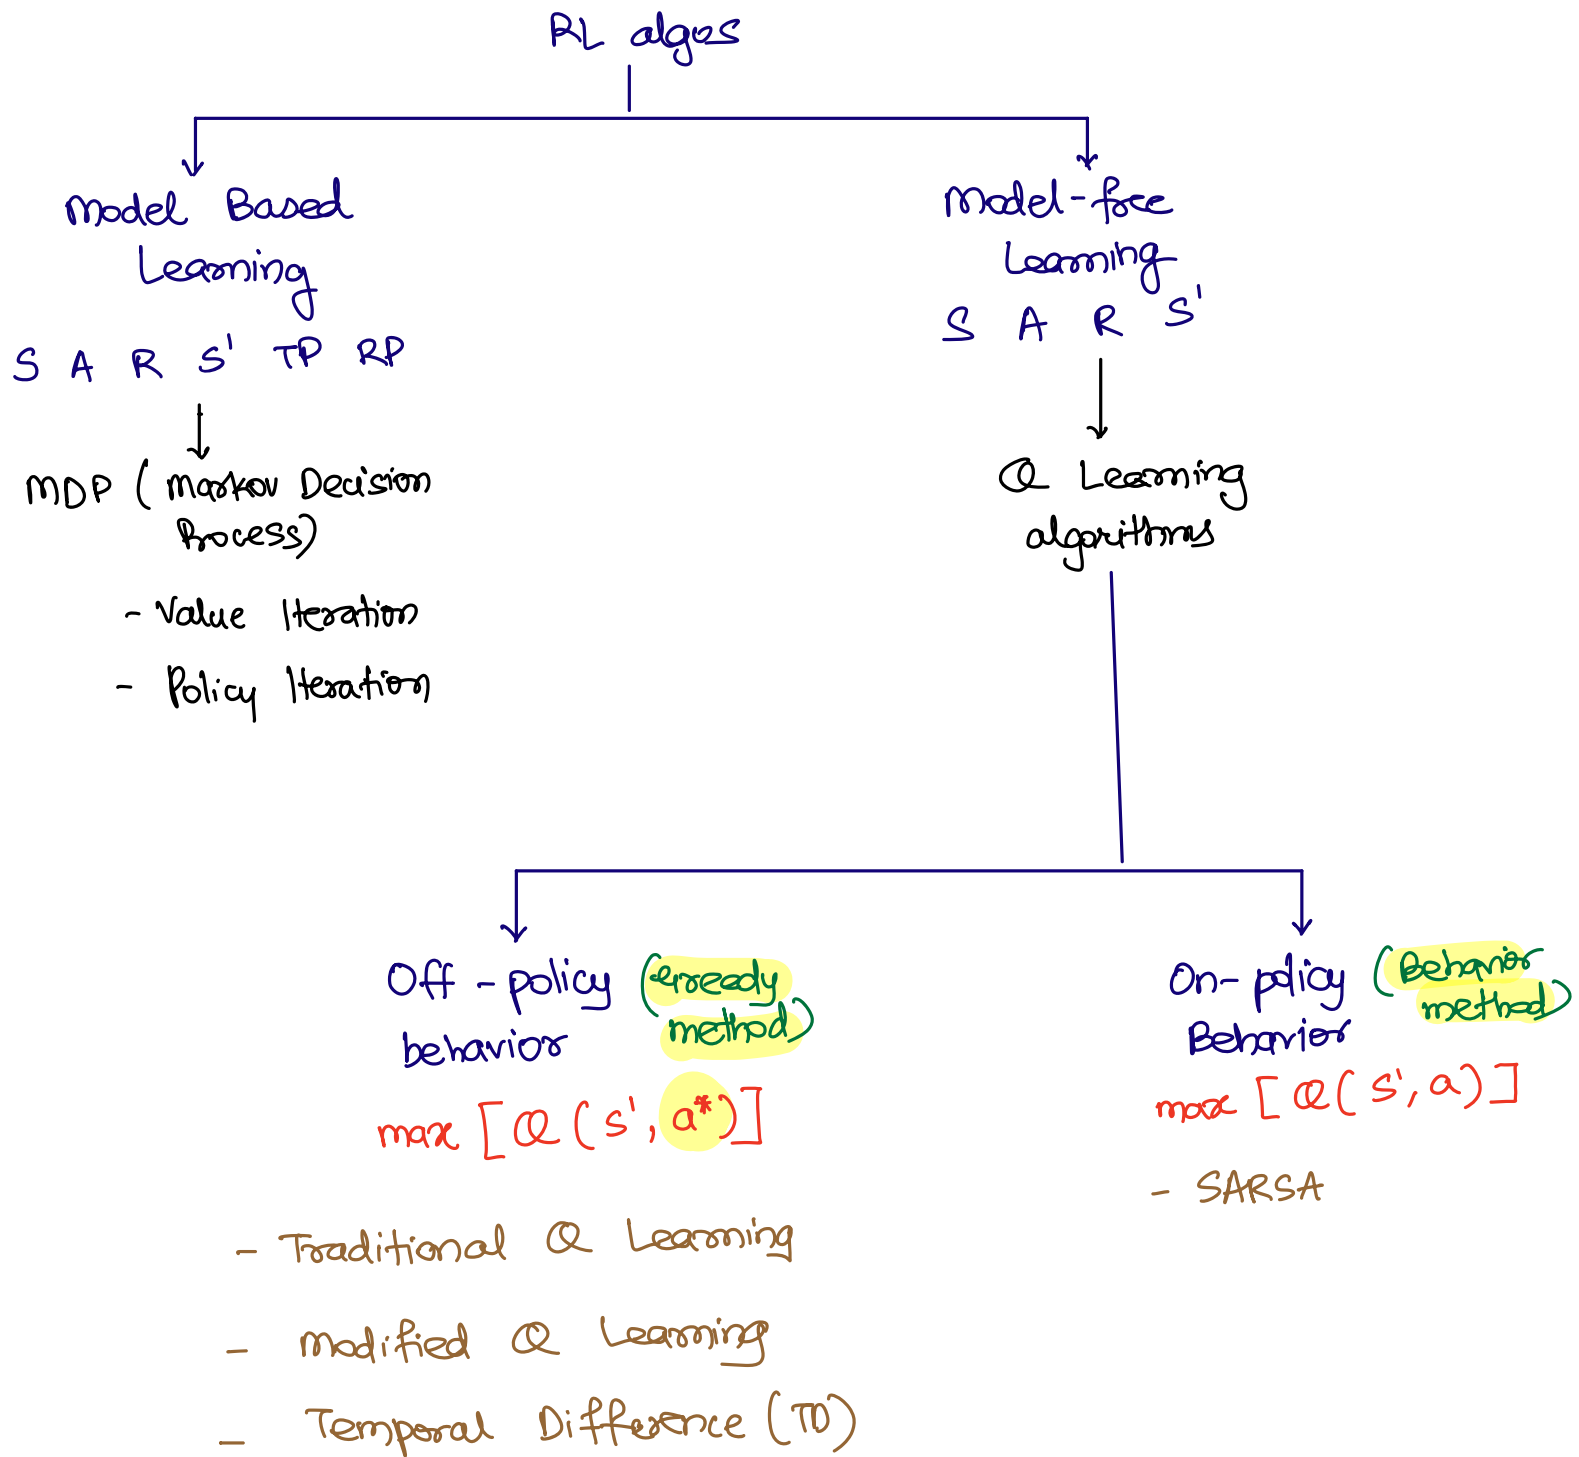 RL algos
Model Based
Learning
S A R S' TP RP
MDP (Markov Decision
Process)
- Value Iteration
- Policy Iteration
Model-free
Learning
S A R S'
Q Learning
algorithms
Off-policy (Greedy
behavior method)
max [Q(s', a*)]
- Traditional Q Learning
- Modified Q Learning
- Temporal Difference (TD)
On-policy (Behavior
Behavior method)
max [Q(s', a)]
- SARSA